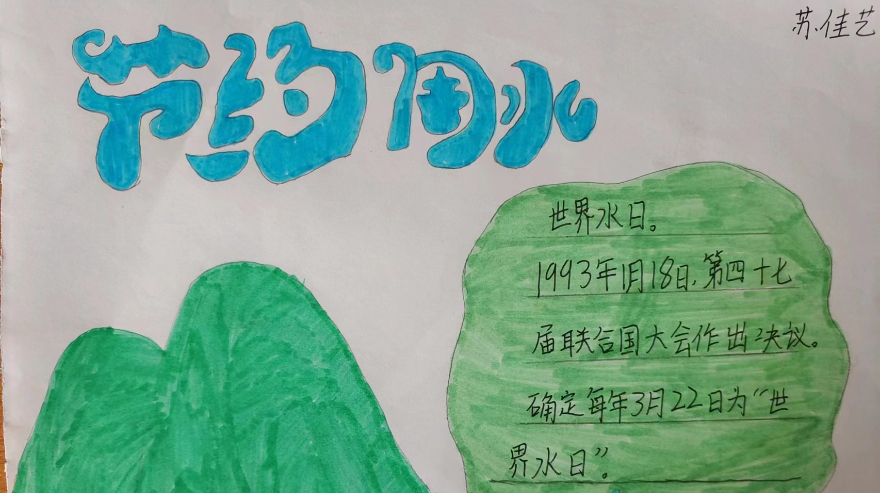 苏佳艺
节约用水
世界水日。
1993年1月18日,第四十七
届联合国大会作出决议。
确定每年3月22日为“世
界水日”。